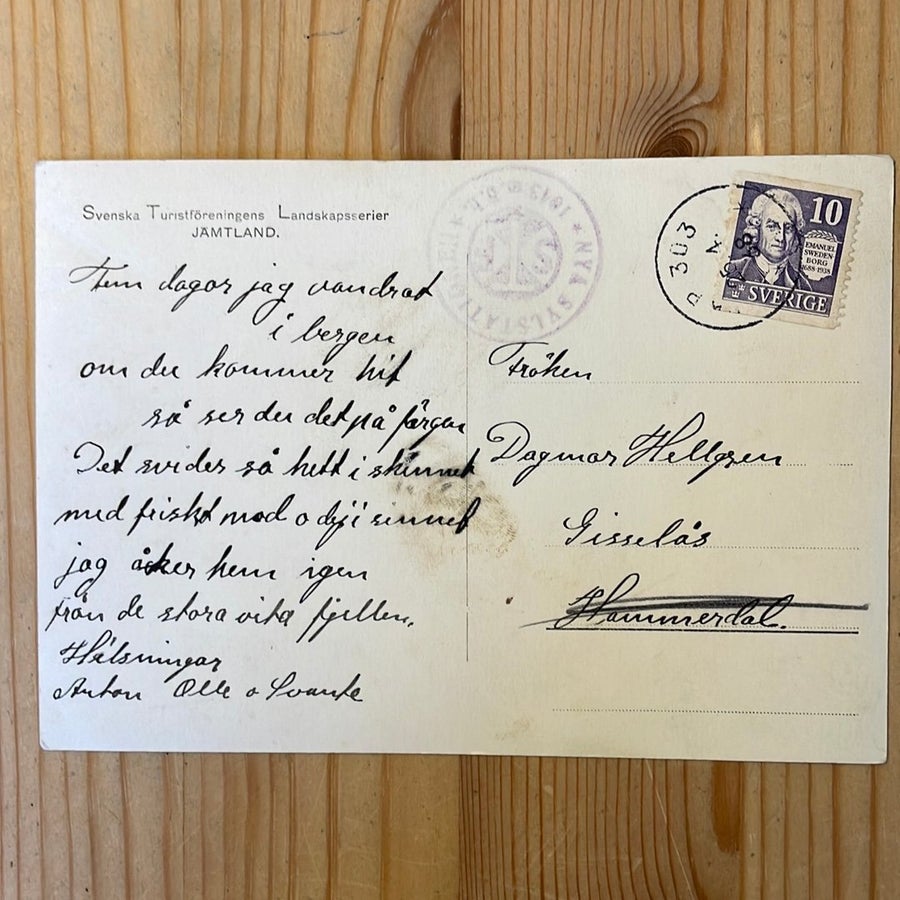 Svenska Turistföreningens Landskapsserier
JÄMTLAND.
Fem dagar jag vandrat
i bergen
om du kommer hit
så ser du det på färgen
Det svider så hett i skinnet
med friskt mod o i sinnet
jag åker hem igen
från de stora vita fjellen.
Hälsningar
Anton Olle o Svante
NYA SYLSTATIONEN
1943
PKP 303
10
EMANUEL
SWEDEN-
BORG
1688-1938
SVERIGE
Fröken
Dagmar Hellgren
Gisselås
Hammerdal.